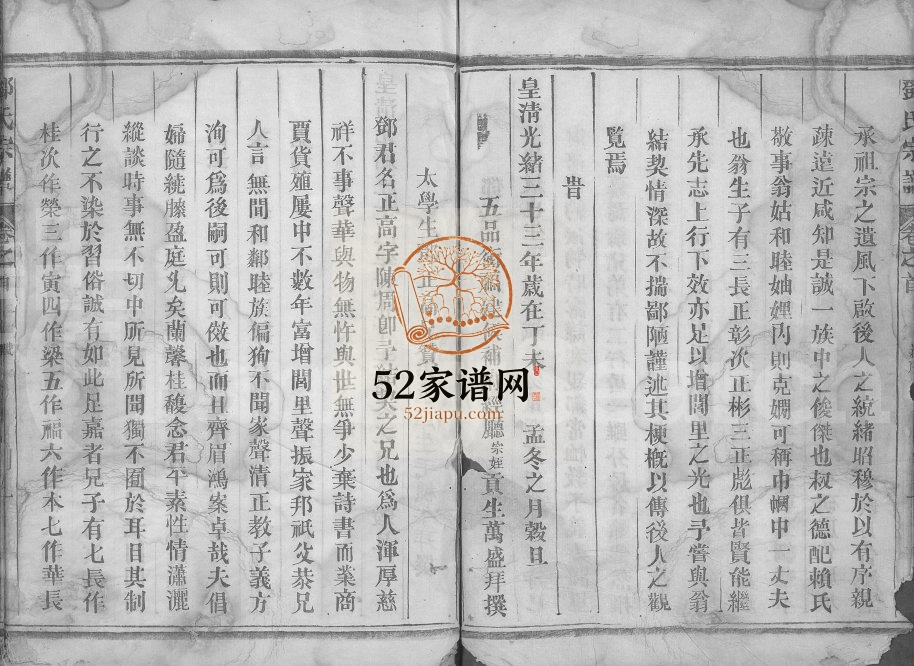 承祖宗之遺風下啟後人之統緒昭穆於以有序親
疎遠近咸知是誠一族中之俊傑也叔之德配賴氏
敬事翁姑和睦妯娌內則克嫻可稱巾幗中一丈夫
也翁生子有三長正彰次正彬三正彪俱皆賢能繼
承先志上行下效亦足以增閭里之光也予嘗與翁
結契情深故不揣鄙陋謹述其梗概以傳後人之觀
覽焉
旹
皇清光緒三十三年歲在丁未 孟冬之月穀旦
五品 補 廳宗姪貢生萬盛拜撰
太學生 正
皇清鄧君名正高字陳周卽 之兄也爲人渾厚慈
祥不事聲華與物無忤與世無爭少棄詩書而業商
賈貨殖屢中不數年富增閭里聲振家邦祇父恭兄
人言無間和鄰睦族偏狥不聞家聲清正教子義方
洵可爲後嗣可則可傚也而且齊眉鴻案卓哉夫倡
婦隨繞膝盈庭允矣蘭馨桂馥念君平素性情瀟灑
縱談時事無不切中所見所聞獨不囿於耳目其制
行之不染於習俗誠有如此足嘉者兄子有七長作
桂次作榮三作寅四作梁五作福六作本七作華長
鄧氏宗譜 卷之首
52家谱网
52jiapu.com